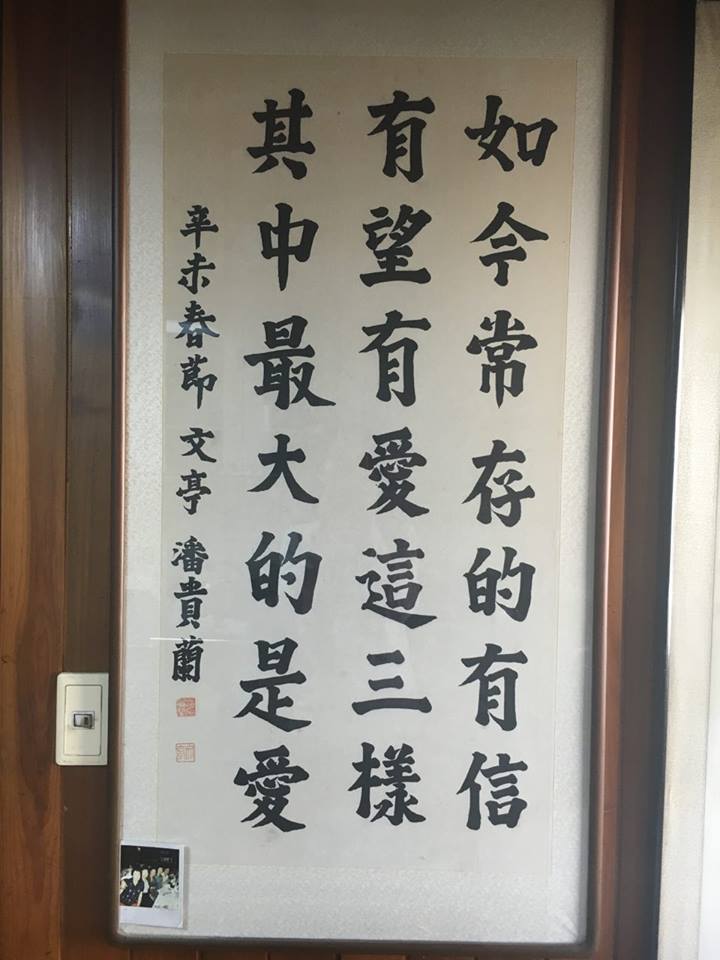 如今常存的有信
有望有愛這三樣
其中最大的是愛
辛未春節 文亭 潘貴蘭